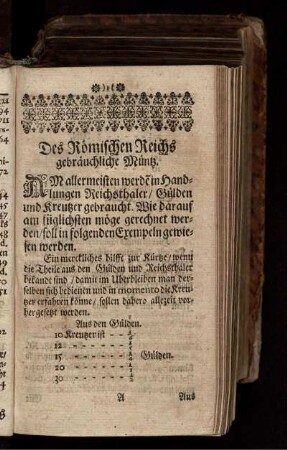 )1(
Des Römischen Reichs
gebräuchliche Müntz.
AM allermeisten werdẽ in Hand-
lungen Reichsthaler / Gülden
und Kreutzer gebraucht. Wie darauf
am füglichsten möge gerechnet wer-
den / soll in folgenden Exempeln gewie-
sen werden.
Ein merckliches hilfft zur Kürtze / wenn
die Theile aus den Gülden und Reichsthaler
bekandt sind / damit im Uberbleiben man der-
selben sich bedienen und in momento die Kreu-
tzer erfahren könne / sollen dahero allezeit vor-
her gesetzt werden.
Aus den Gülden.
10 Kreutzer ist - - 1/6
12 - - - - - - - 1/5
15 - - - - - - - 1/4 Gülden.
20 - - - - - - - 1/3
30 - - - - - - - 1/2
A Aus